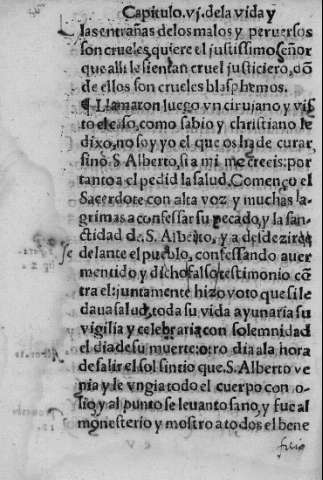 Capitulo.vj.dela vida y
las entrañas de los malos y peruersos
son crueles, quiere el justissimo señor
que alli le sientan cruel justiciero, dõ
de ellos son crueles blasphemos.
¶ Llamaron luego vn cirujano y vis
to el caso, como sabio y christiano le
dixo, no soy yo el que os ha de curar,
sino. S. Alberto, si a mi me creeis: por
tanto a el pedid la salud. Començo el
Sacerdote con alta voz y muchas la-
grimas a confessar su pecado, y la san-
ctidad de. S. Alberto, y a desdezirse
delante el pueblo, confessando auer
mentido y dicho falso testimonio cõ
tra el: juntamente hizo voto que si le
daua salud, toda su vida ayunaria su
vigilia y celebraria con solemnidad
el dia de su muerte: otro dia a la hora
de salir el sol sintio que. S. Alberto ve
nia y le vngia todo el cuerpo con o-
lio y al punto se leuanto sano, y fue al
monesterio y mostro a todos el bene
ficio